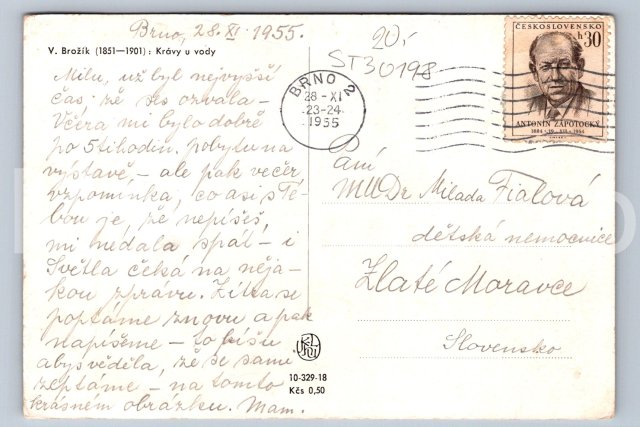 Brno, 28. XI. 1955.
V. Brožík (1851—1901): Krávy u vody
Milu, už byl nejvyšší
čas, že ses ozvala –
Včera mi bylo dobře
po 5tihodin. pobytu na
výstavě – ale pak večer
vzpomínka, co asi s Té-
bou je, že nepíšeš,
mi nedala spát – i
Světla čeká na něja-
kou zprávu. Zítra se
poptáme znovu a pak
napíšeme – to píšu
abys věděla, že se samy
zeptáme – na tomto
krásném obrázku. Mam.
20,-
ST30198
BRNO 2
28 - XI
23-24
1955
ČESKOSLOVENSKO
h 30
ANTONÍN ZÁPOTOCKÝ
1884 - 19 - XII - 1954
Paní
MUDr Milada Fialová
dětská nemocnice
Zlaté Moravce
Slovensko
10-329-18
Kčs 0,50